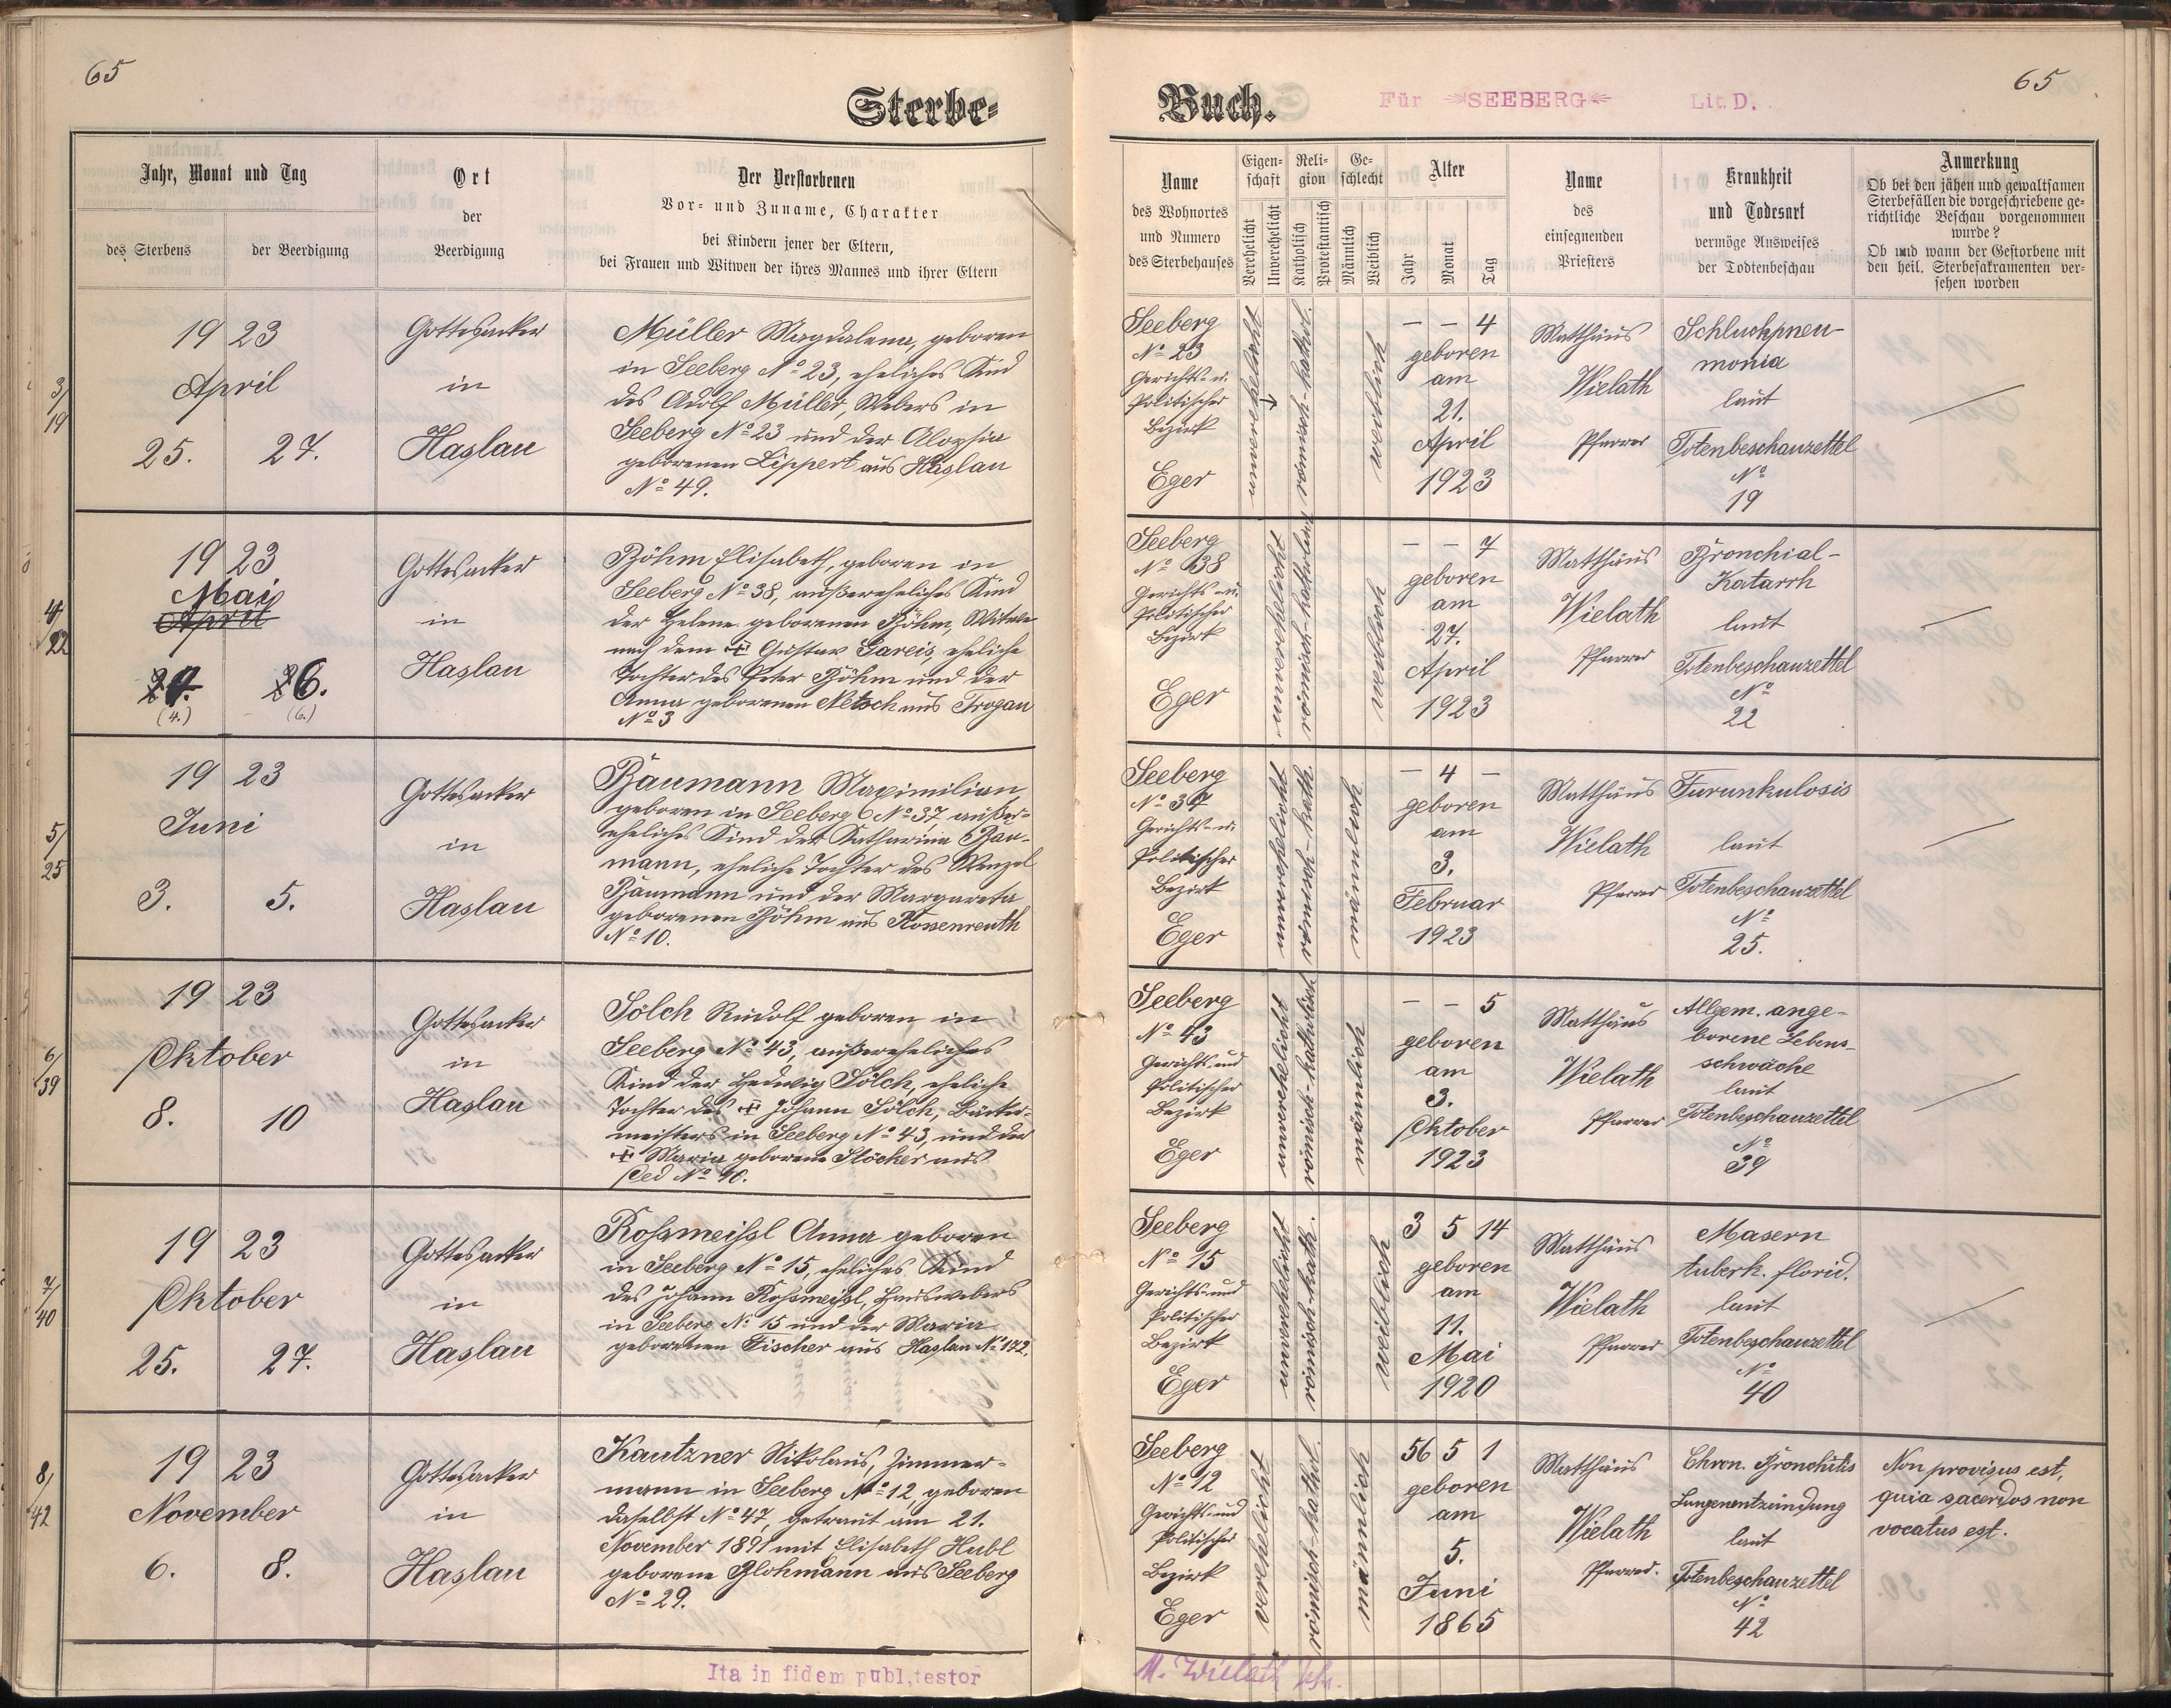 65
65
Sterbe=
Buch.
Für »SEEBERG« Lit. D.
Jahr, Monat und Tag
des Sterbens
der Beerdigung
Ort
der
Beerdigung
Der Verstorbenen
Vor= und Zuname, Charakter
bei Kindern jener der Eltern,
bei Frauen und Witwen der ihres Mannes und ihrer Eltern
Name
des Wohnortes
und Numero
des Sterbehauses
Eigen-
schaft
Verehelicht
Unverehelicht
Reli-
gion
Katholisch
Protestantisch
Ge-
schlecht
Männlich
Weiblich
Alter
Jahr
Monat
Tag
Name
des
einsegnenden
Priesters
Krankheit
und Todesart
vermöge Ausweises
der Todtenbeschau
Anmerkung
Ob bei den jähen und gewaltsamen
Sterbefällen die vorgeschriebene ge-
richtliche Beschau vorgenommen
wurde?
Ob und wann der Gestorbene mit
den heil. Sterbesakramenten ver-
sehen worden
3/
19
19 23
April
25. 27.
Gottesacker
in
Haslau
Müller Magdalena, geboren
in Seeberg No 23, eheliches Kind
des Adolf Müller, Webers in
Seeberg No 23 und der Aloysia
geborenen Lippert aus Haslau
No 49.
Seeberg
No 23
Gerichts- u.
Politischer
Bezirk
Eger
unverehelicht
römisch-kathol.
weiblich
— — 4
geboren
am
21.
April
1923
Matthäus
Wielath
Pfarrer
Schluckpneu-
monia
laut
Totenbeschauzettel
No
19
4/
22
19 23
Mai
April
(4.)
6.
(6.)
Gottesacker
in
Haslau
Böhm Elisabeth, geboren in
Seeberg No 38, außereheliches Kind
der Helene geborenen Böhm, Witwe
nach dem ✝ Gustav Gareis, eheliche
Tochter des Peter Böhm und der
Anna geborenen Netsch aus Trogau
No 3
Seeberg
No 38
Gerichts- u.
Politischer
Bezirk
Eger
unverehelicht
römisch-katholisch
weiblich
— — 7
geboren
am
27.
April
1923
Matthäus
Wielath
Pfarrer
Bronchial-
Katarrh
laut
Totenbeschauzettel
No
22
5/
25
19 23
Juni
3. 5.
Gottesacker
in
Haslau
Baumann Maximilian
geboren in Seeberg No 37, außer-
eheliches Kind der Katharina Bau-
mann, eheliche Tochter des Wenzel
Baumann und der Margareta
geborenen Böhm aus Rossenreuth
No 10.
Seeberg
No 37
Gerichts- u.
Politischer
Bezirk
Eger
unverehelicht
römisch-kath.
männlich
— 4 —
geboren
am
3.
Februar
1923
Matthäus
Wielath
Pfarrer
Furunkulosis
laut
Totenbeschauzettel
No
25.
6/
39
19 23
Oktober
8. 10
Gottesacker
in
Haslau
Sölch Rudolf geboren in
Seeberg No 43, außereheliches
Kind der Hedwig Sölch, eheliche
Tochter des ✝ Johann Sölch, Bäcker-
meisters in Seeberg No 43, und der
✝ Maria geborene Stöcker aus
Oed No 40.
Seeberg
No 43
Gerichts- und
Politischer
Bezirk
Eger
unverehelicht
römisch-katholisch
männlich
— — 5
geboren
am
3.
Oktober
1923
Matthäus
Wielath
Pfarrer
Allgem. ange-
borene Lebens-
schwäche
laut
Totenbeschauzettel
No
39
7/
40
19 23
Oktober
25. 27.
Gottesacker
in
Haslau
Rossmeissl Anna geboren
in Seeberg No 15, eheliches Kind
des Johann Rossmeissl, Hauswebers
in Seeberg No 15 und der Maria
geborenen Fischer aus Haslau No 142.
Seeberg
No 15
Gerichts- und
Politischer
Bezirk
Eger
unverehelicht
römisch-kath.
weiblich
3 5 14
geboren
am
11.
Mai
1920
Matthäus
Wielath
Pfarrer
Masern
tuberk. florid.
laut
Totenbeschauzettel
No
40
8/
42
19 23
November
6. 8.
Gottesacker
in
Haslau
Kautzner Nikolaus, Zimmer-
mann in Seeberg No 12, geboren
daselbst No 47, getraut am 21.
November 1891 mit Elisabeth Hubl
geborene Glohmann aus Seeberg
No 29.
Seeberg
No 12
Gerichts- und
Politischer
Bezirk
Eger
verehelicht
römisch-kathol.
männlich
56 5 1
geboren
am
5.
Juni
1865
Matthäus
Wielath
Pfarrer.
Chron. Bronchitis
Lungenentzündung
laut
Totenbeschauzettel
No
42
Non provisus est,
quia sacerdos non
vocatus est.
Ita in fidem publ, testor
M. Wielath